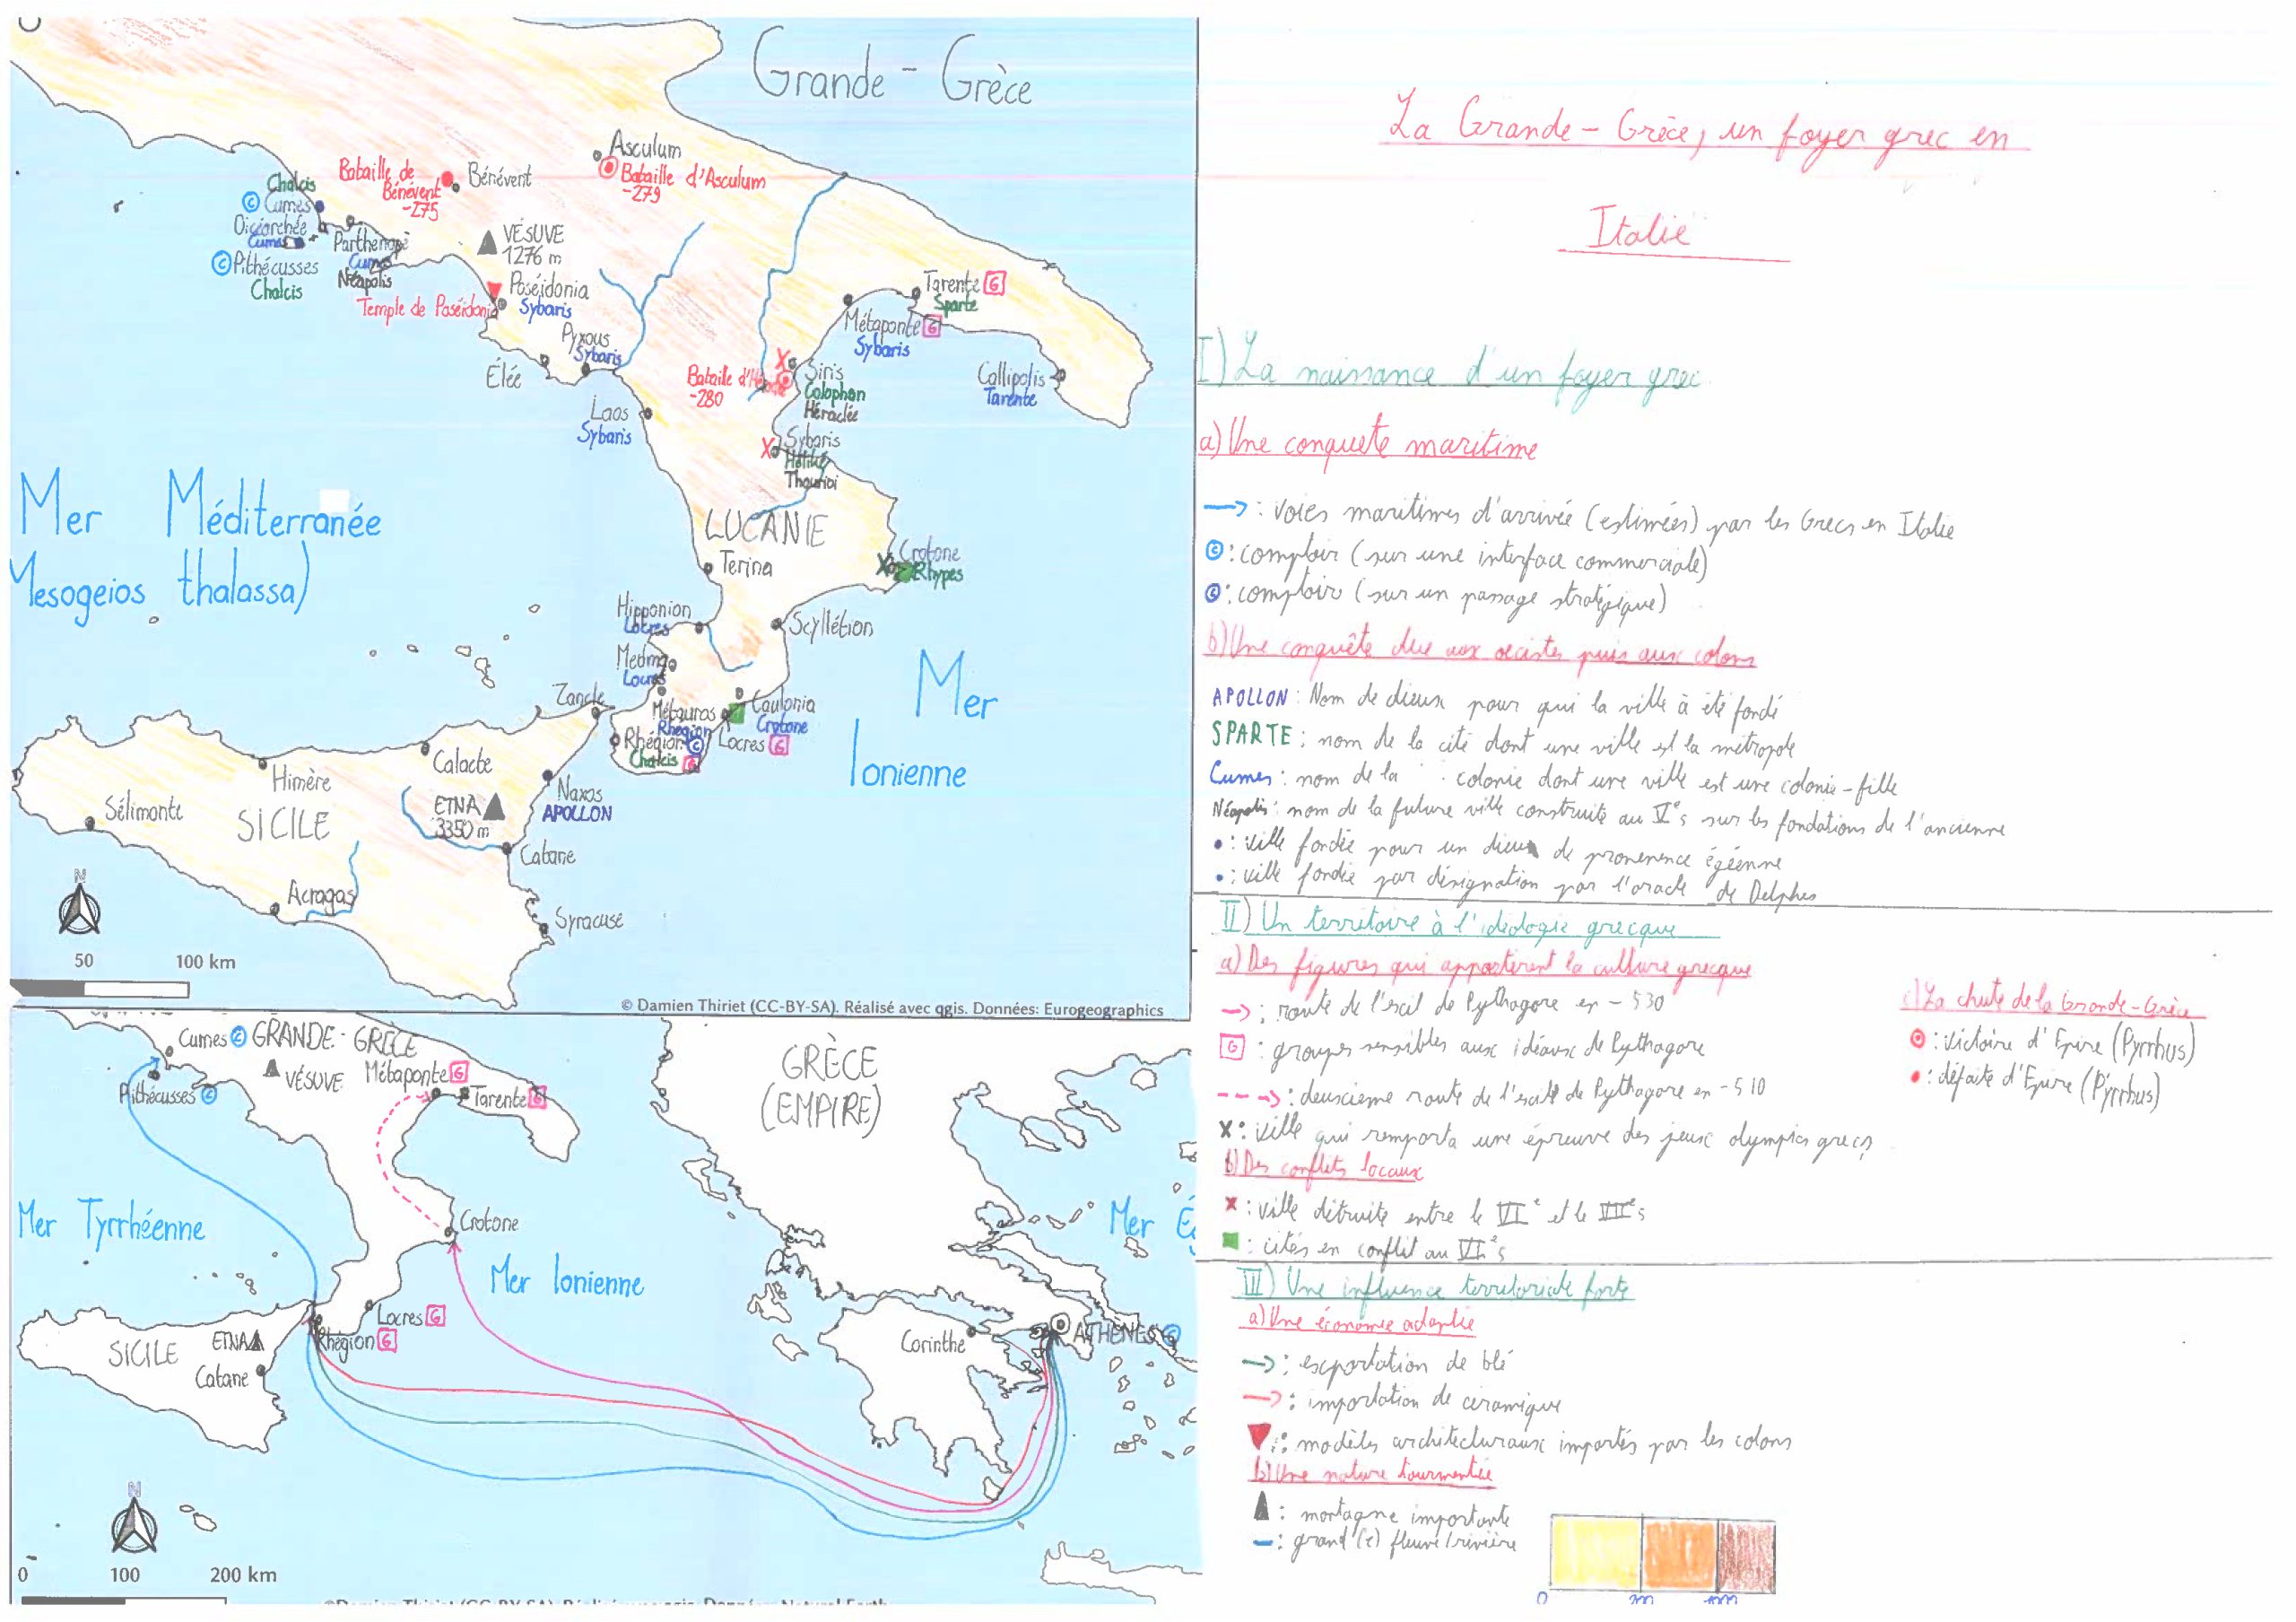 Grande - Grèce
Asculum
Bataille d'Asculum
-279
Bataille de
Bénévent
-275
Bénévent
Chalcis
© Cumes
Dicéarchée
Cumes
© Pithécusses
Chalcis
Parthenopè
Cumes
Néapolis
VÉSUVE
1276 m
Poséidonia
Sybaris
Temple de Poséidonia
Pyxous
Sybaris
Élée
Laos
Sybaris
Tarente G
Sparte
Métaponte G
Sybaris
Callipolis
Tarente
Bataille
-280
X
Siris
Colophon
Héraclée
X
Sybaris
Hélikè
Thourioi
LUCANIE
Terina
X
Crotone
Rhypes
Mer Méditerranée
Mesogeios thalassa)
Hipponion
Locres
Scyllétion
Medma
Locres
Métauros
Rhegion
Caulonia
Crotone
Rhégion ©
Chalcis G
Locres G
Mer
Ionienne
Zancle
Calacte
Himère
Naxos
APOLLON
ETNA
3350 m
Sélimonte
SICILE
Catane
Acragas
Syracuse
N
50 100 km
© Damien Thiriet (CC-BY-SA). Réalisé avec qgis. Données: Eurogeographics
Cumes © GRANDE - GRÈCE
VÉSUVE
Pithécusses ©
Métaponte G
Tarente G
GRÈCE
(EMPIRE)
Mer Tyrrhéenne
Crotone
Mer Ionienne
Mer É
Locres G
Rhégion G
ETNA
SICILE
Catane
Corinthe
ATHÈNES ©
N
0 100 200 km
La Grande - Grèce, un foyer grec en
Italie
I) La naissance d'un foyer grec
a) Une conquete maritime
: voies maritimes d'arrivée (estimées) par les Grecs en Italie
© : comptoir (sur une interface commerciale)
© : comptoire (sur un passage stratégique)
b) Une conquête due aux oecistes puis aux colons
APOLLON : Nom de dieux pour qui la ville à été fondé
SPARTE : nom de la cité dont une ville est la métropole
Cumes : nom de la colonie dont une ville est une colonie-fille
Néapolis : nom de la future ville construite au V^e s sur les fondations de l'ancienne
: ville fondée pour un dieux de provenence égéenne
: ville fondée par désignation par l'oracle de Delphes
II) Un territoire à l'idéologie grecque
a) Des figures qui apportèrent la culture grecque
: route de l'exil de Pythagore en - 530
G : groupes sensibles aux idéaux de Pythagore
: deuxième route de l'exil de Pythagore en - 510
X : ville qui remporta une épreuve des jeux olympics grecs
b) Des conflits locaux
X : ville détruite entre le VI^e et le s
: cités en conflit au VI^e s
c) La chute de la Grande-Grèce
: victoire d'Epire (Pyrrhus)
: défaite d'Epire (Pyrrhus)
III) Une influence territoriale forte
a) Une économie adaptée
: exportation de blé
: importation de céramique
: modèles architecturaux importés par les colons
b) Une nature tourmentée
: montagne importante
: grand(e) fleuve/rivière
0 200 1000